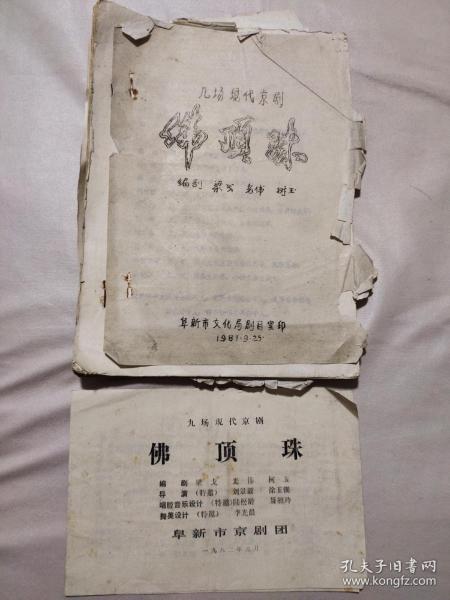 九场现代京剧
佛顶珠
编剧 梁戈 树玉
阜新市文化局剧目室印
1981.9.25.
九场现代京剧
佛顶珠
编剧 梁戈
导演(特邀) 刘景毅
唱腔音乐设计(特邀)陆松龄
舞美设计(特邀) 李光晨
阜新市京剧团
一九八二年 月
孔夫子旧书网
www.kongfz.com